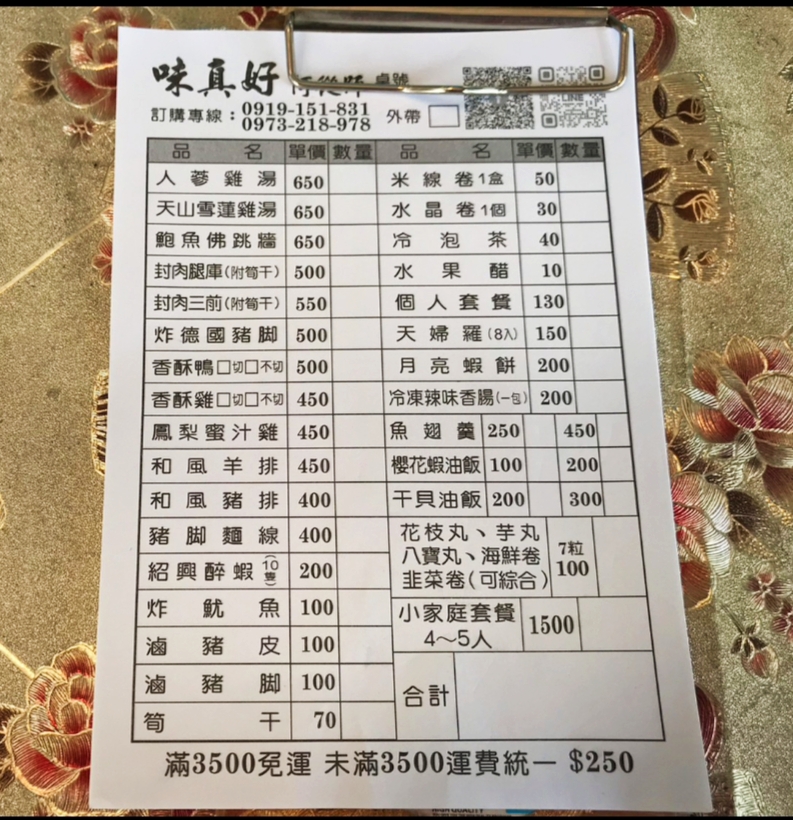 味真好
桌號
訂購專線：0919-151-831
0973-218-978
外帶
LINE
品名 單價 數量 品名 單價 數量
人蔘雞湯 650
天山雪蓮雞湯 650
鮑魚佛跳牆 650
封肉腿庫(附筍干) 500
封肉三前(附筍干) 550
炸德國豬腳 500
香酥鴨□切□不切 500
香酥雞□切□不切 450
鳳梨蜜汁雞 450
和風羊排 450
和風豬排 400
豬腳麵線 400
紹興醉蝦(10隻) 200
炸魷魚 100
滷豬皮 100
滷豬腳 100
筍干 70
米線卷1盒 50
水晶卷1個 30
冷泡茶 40
水果醋 10
個人套餐 130
天婦羅(8入) 150
月亮蝦餅 200
冷凍辣味香腸(一包) 200
魚翅羹 250 450
櫻花蝦油飯 100 200
干貝油飯 200 300
花枝丸、芋丸
八寶丸、海鮮卷
韭菜卷(可綜合)
7粒
100
小家庭套餐
4～5人
1500
合計
滿3500免運 未滿3500運費統一 $250